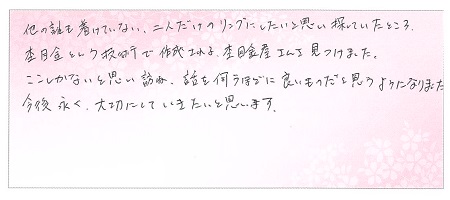 他の誰も着けていない、二人だけのリングにしたいと思い探していたところ、
杢目金という技術で作成される、杢目金屋さんを見つけました。
ここしかないと思い訪れ、話を伺うほどに良いものだと思うようになりました
今後永く、大切にしていきたいと思います。